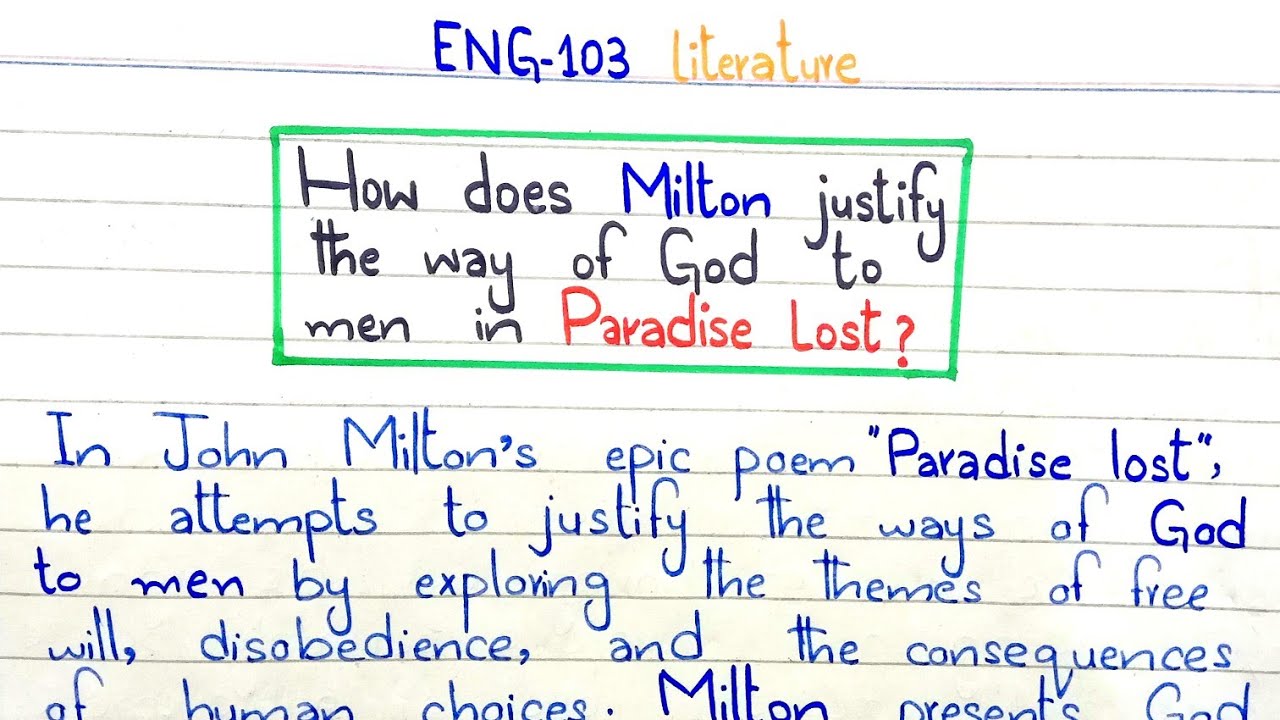 ENG-103 literature
How does Milton justify
the way of God to
men in Paradise Lost?
In John Milton's epic poem "Paradise lost",
he attempts to justify the ways of God
to men by exploring the themes of free
will, disobedience, and the consequences
of human choices. Milton presents God